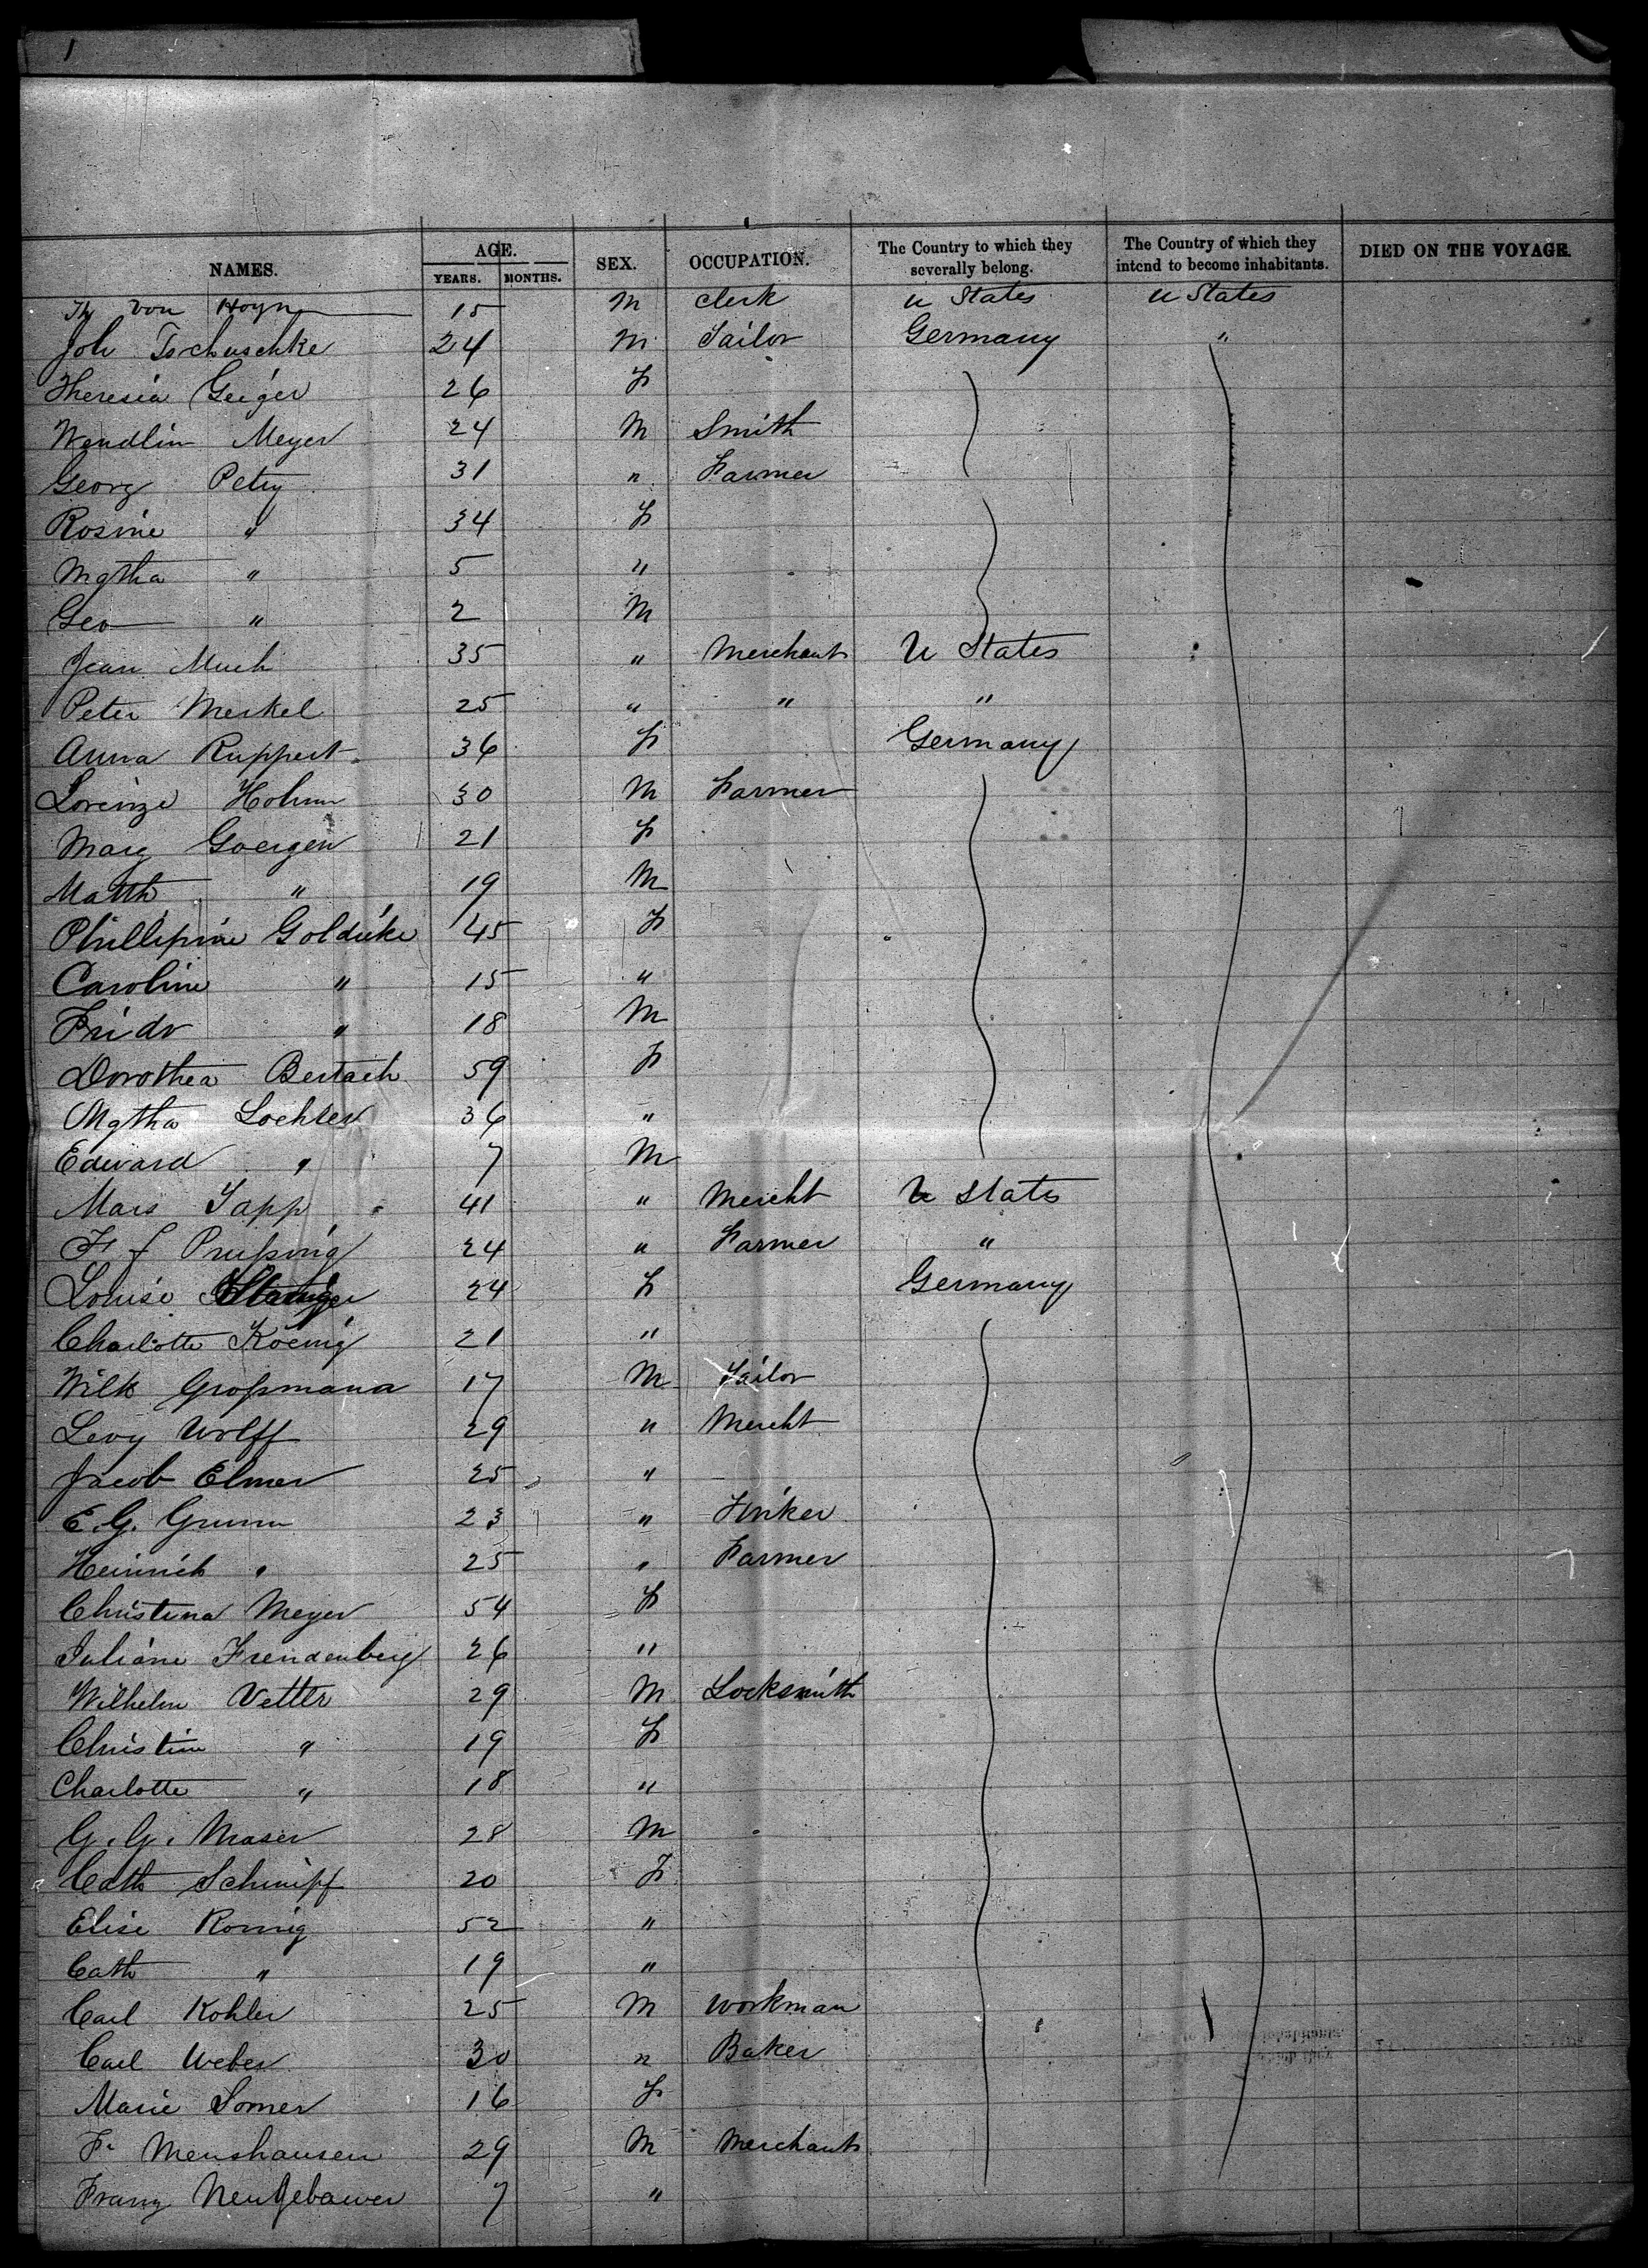 1
NAMES. AGE. SEX. OCCUPATION. The Country to which they severally belong. The Country of which they intend to become inhabitants. DIED ON THE VOYAGE.
YEARS. MONTHS.
Th von Hoyn 15 M Clerk U States U States
Joh Tschuschke 24 M Tailor Germany "
Theresia Geiger 26 F
Wendlin Meyer 24 M Smith
Georg Petry 31 " Farmer
Rosine " 34 F
Mgtha " 5 "
Geo " 2 M
Jean Much 35 " Merchant U States
Peter Merkel 25 " " "
Anna Ruppert 36 F Germany
Lorenze Hohm 30 M Farmer
Marg Goergen 21 F
Matth " 19 M
Phillipine Goldicke 45 F
Caroline " 15 "
Fridr " 18 M
Dorothea Bertach 59 F
Mgtha Lochler 36 "
Edward " 7 M
Mars Tapp 41 " Mercht U States
F f Prußing 24 " Farmer "
Louise 24 F Germany
Charlotte Koenig 21 "
Wilh Großmann 17 M Tailor
Levy Wolff 29 " Mercht
Jacob Elmer 25 "
E. G. Grumm 23 " Tinker
Heinrich " 25 " Farmer
Christina Meyer 54 F
Juliane Freudenberg 26 "
Wilhelm Vetter 29 M Locksmith
Christine " 19 F
Charlotte " 18 "
G. G. Maser 28 M
Cath Schimpf 20 F
Elise Romig 52 "
Cath " 19 "
Carl Kohler 25 M workman
Carl Weber 30 " Baker
Marie Somer 16 F
F. Menshausen 29 M Merchant
Franz Neugebauer 7 "